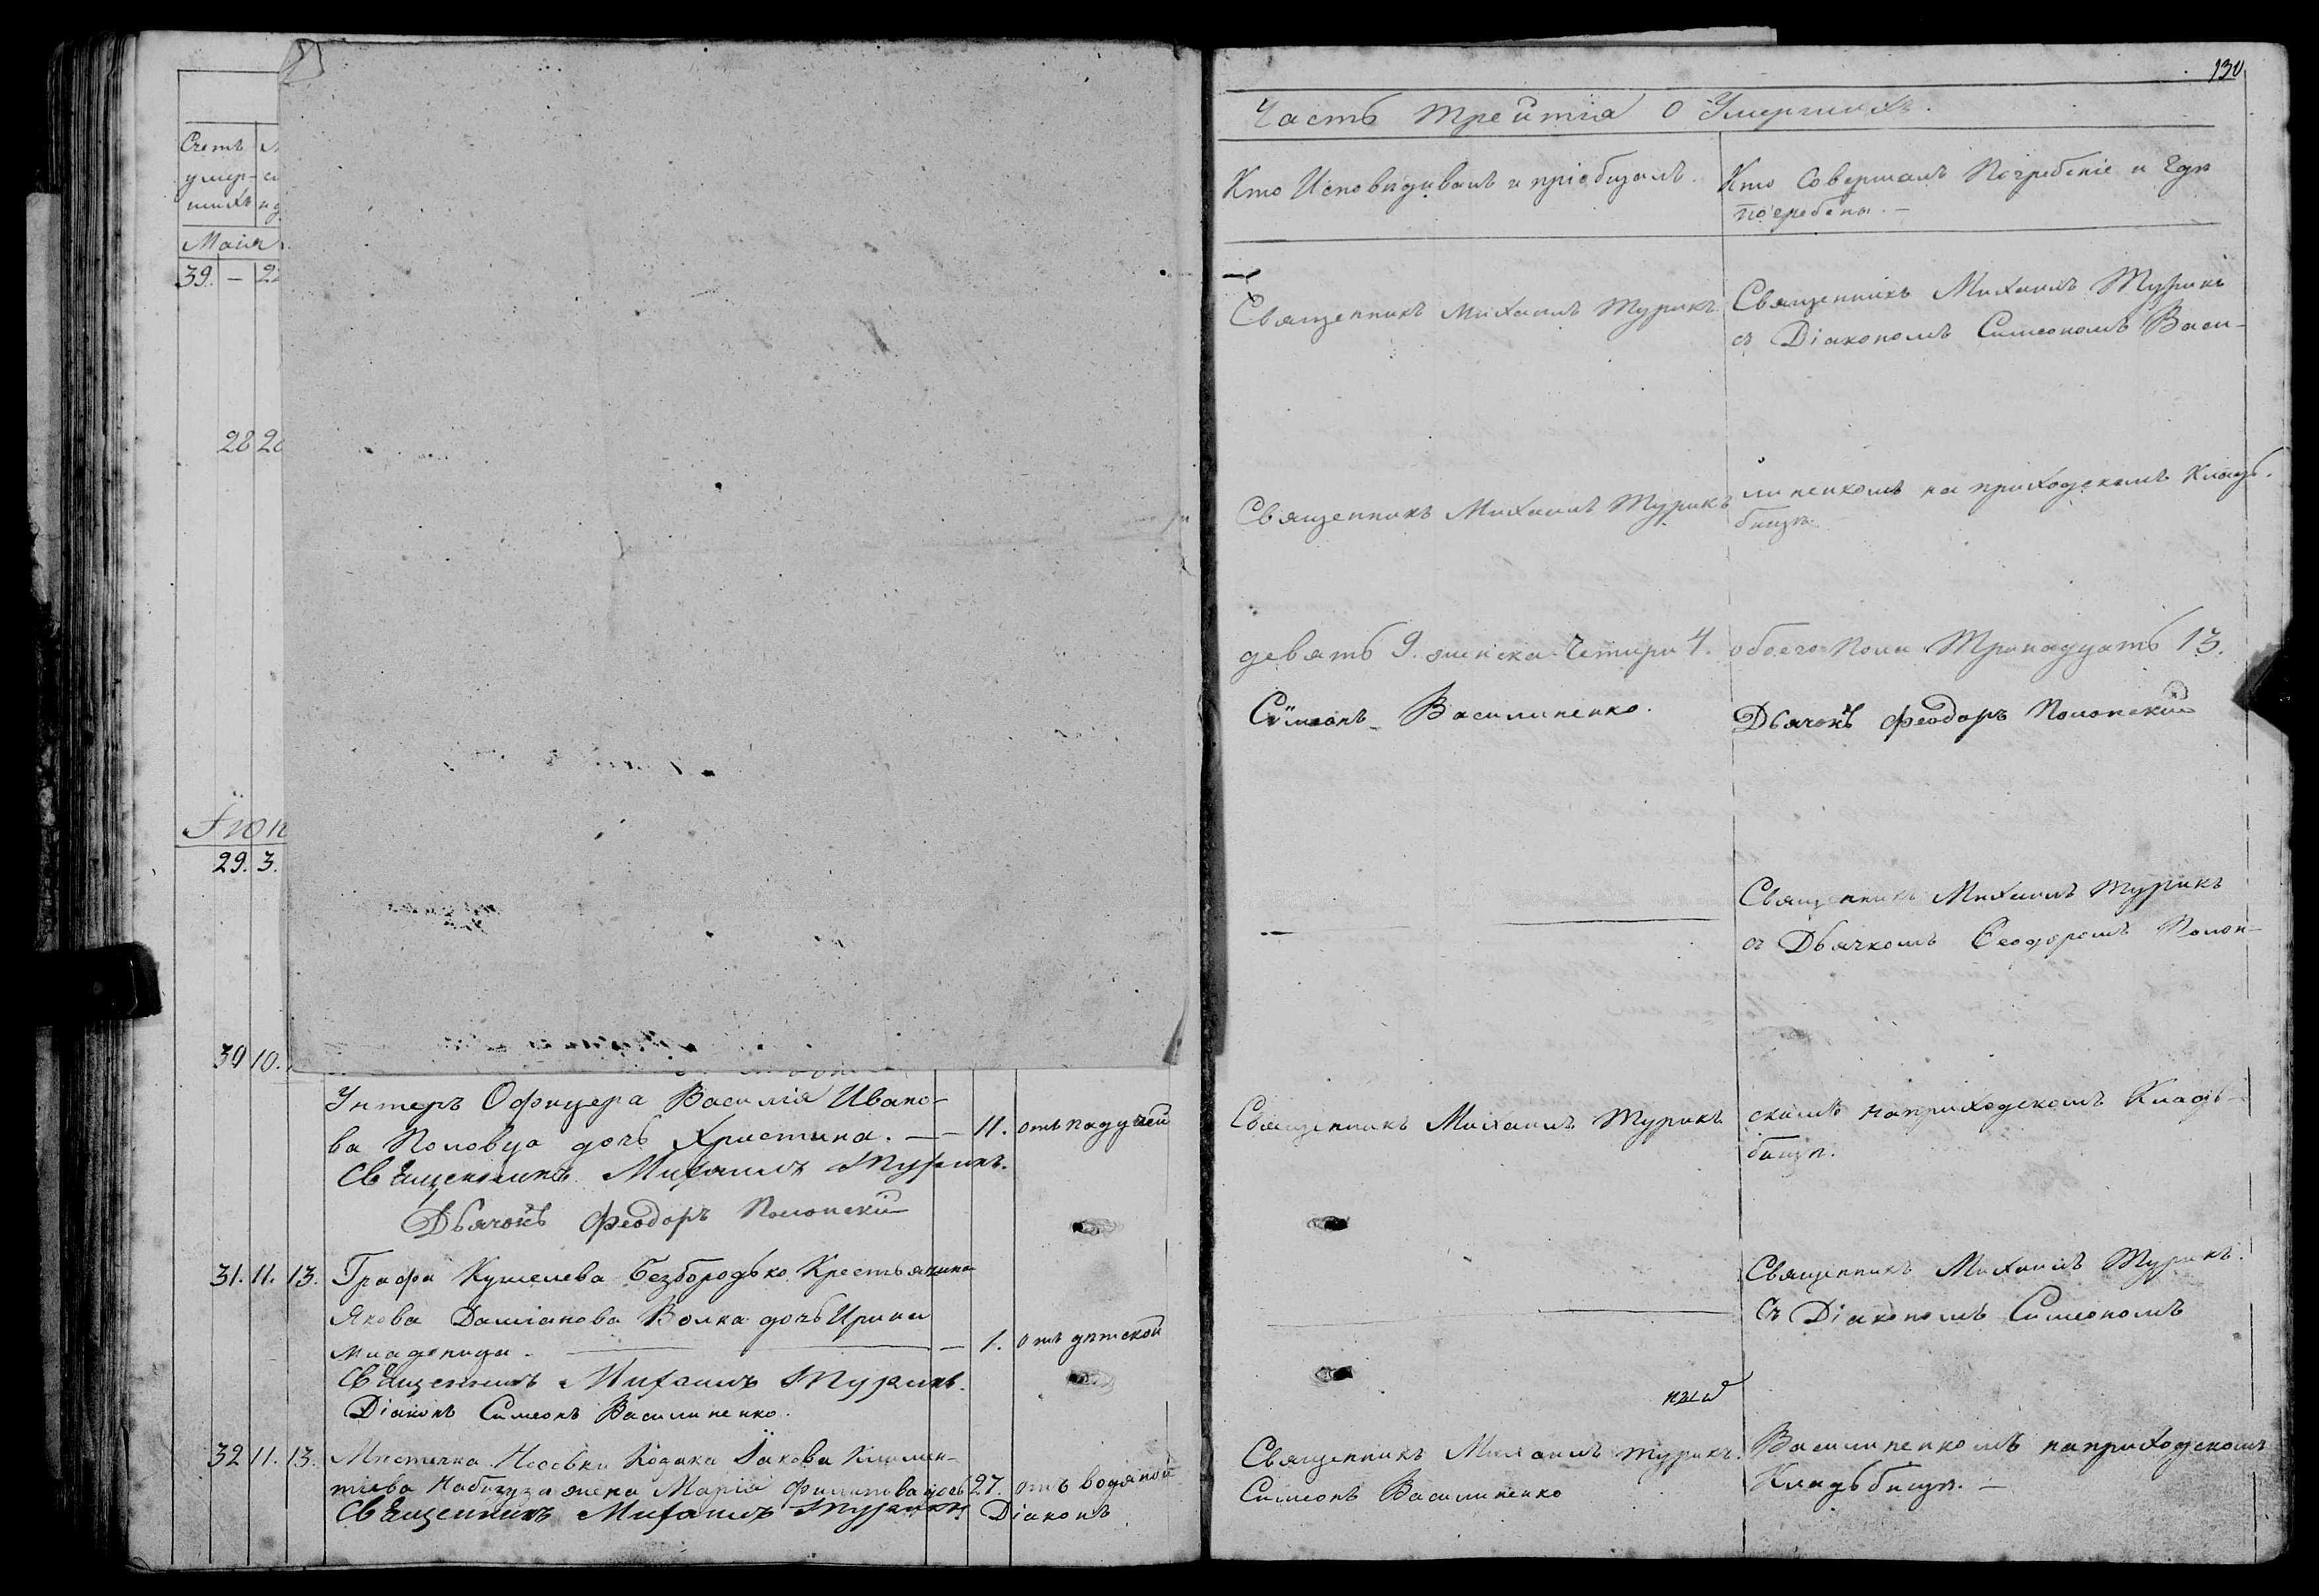 Счетъ
умер-
шихъ
Маія
39. — 22
28 20
Іюн
29. 3.
30 10.
Унтеръ Офицера Василія Ивано-
ва Половца дочь Христина. — — 11. отъ падучей
Священникъ Михаилъ Турикъ.
Дьячокъ Феодоръ Полонскій
31. 11. 13. Графа Кушелева Безбородько Крестьянина
Якова Даміанова Волка дочь Ирина
младеница. — — 1. отъ дѣтской
Священникъ Михаилъ Турикъ.
Діаконъ Симеонъ Василиненко.
32 11. 13. Мѣстечка Носовки Козака Іакова Климен-
тіева жена Марія Филипова дочь 27. отъ водяной
Священникъ Михаилъ Турикъ Діаконъ
130
Часть трейтія о Умершихъ.
Кто Исповѣдивалъ и пріобщалъ.
Кто Совершалъ Погребеніе и Гдѣ
погребены. —
Священникъ Михаилъ Турикъ
Священникъ Михаилъ Турикъ
съ Діакономъ Симеономъ Васи-
Священникъ Михаилъ Турикъ
линенкомъ на приходскомъ Кладь-
бищѣ.
девять 9. женска Четири 4. обоего Пола Тринадцать 13.
Симеонъ Василиненко.
Дьячокъ Феодоръ Полонскій
Священникъ Михаилъ Турикъ
съ Дьячкомъ Феодоромъ Полон-
Священникъ Михаилъ Турикъ
скимъ на приходскомъ Кладь-
бищѣ.
Священникъ Михаилъ Турикъ.
Съ Діакономъ Симеономъ
Священникъ Михаилъ Турикъ.
Василиненкомъ на приходскомъ
Симеонъ Василиненко
Кладьбищѣ. —